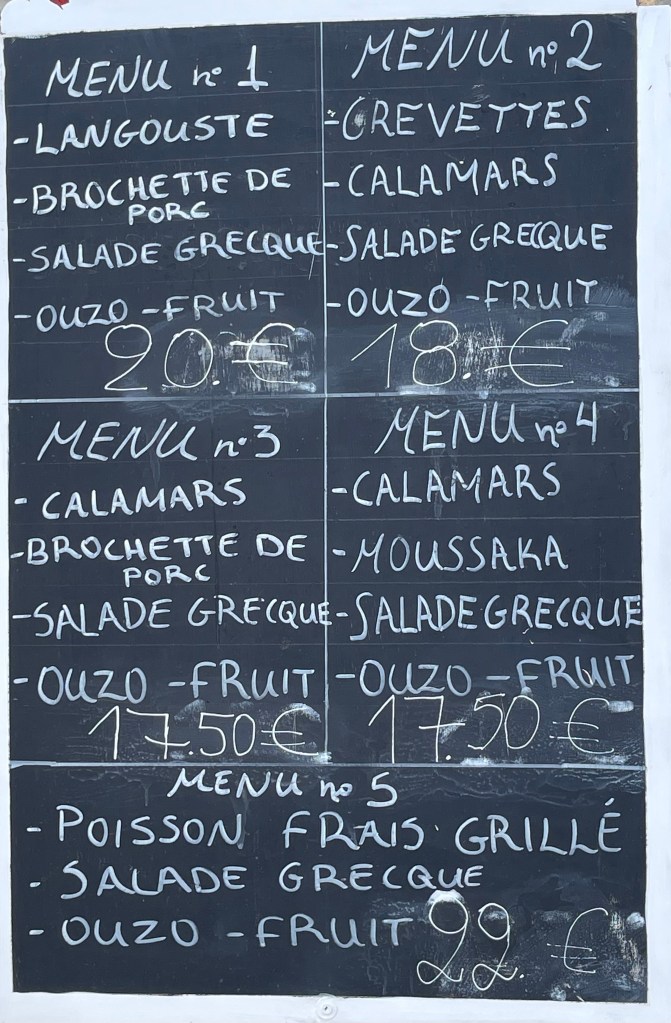 MENU n° 1
- LANGOUSTE
- BROCHETTE DE
PORC
- SALADE GRECQUE
- OUZO - FRUIT
20.€
MENU n° 2
- CREVETTES
- CALAMARS
- SALADE GRECQUE
- OUZO - FRUIT
18.€
MENU n° 3
- CALAMARS
- BROCHETTE DE
PORC
- SALADE GRECQUE
- OUZO - FRUIT
17.50€
MENU n° 4
- CALAMARS
- MOUSSAKA
- SALADE GRECQUE
- OUZO - FRUIT
17.50€
MENU n° 5
- POISSON FRAIS GRILLÉ
- SALADE GRECQUE
- OUZO - FRUIT 22.€